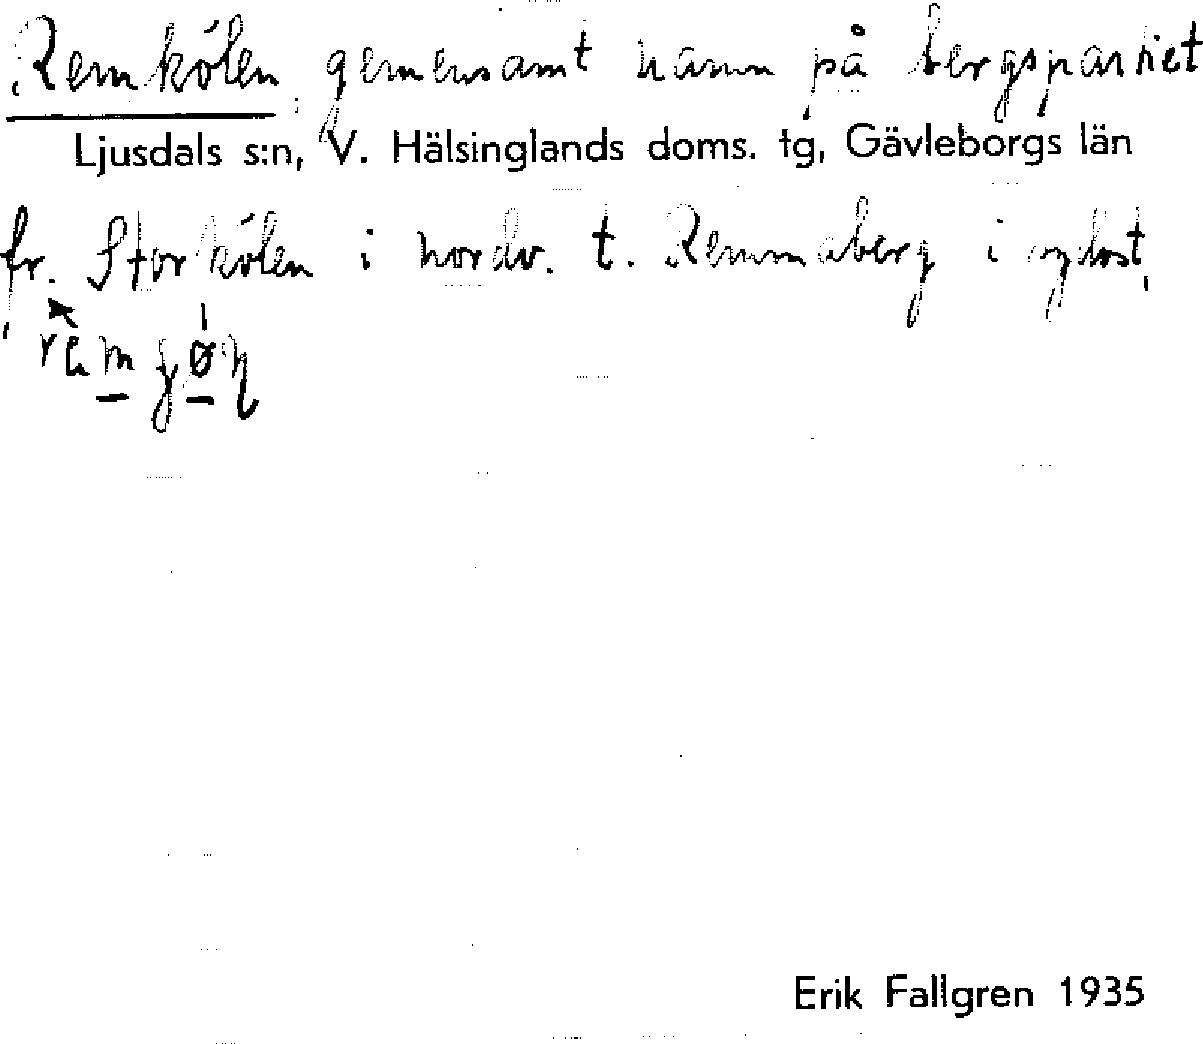 Remkölen, gemensamt namn på bergspartiet
Ljusdals s:n, V. Hälsinglands doms. tg, Gävleborgs län
fr. Storkölen i nordv. t. Remmaberg i sydost,